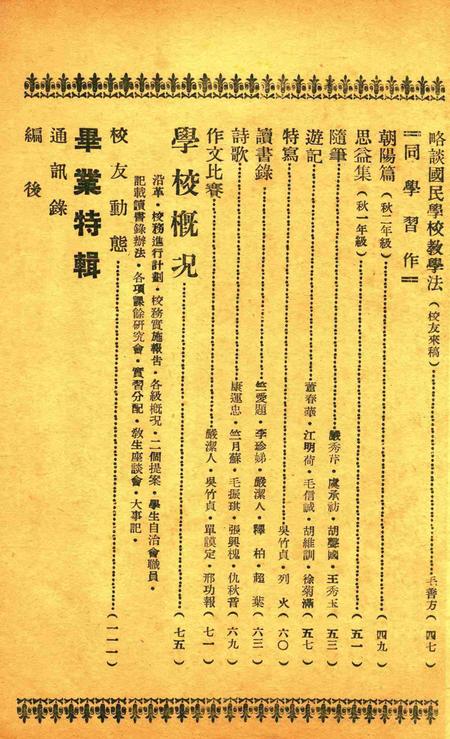 略談國民學校教學法(校友來稿)毛善方(四七)
同學習作
朝陽篇(秋二年級)(四九)
思益集(秋一年級)(五一)
隨筆 嚴秀芹・虞承祜・胡聲國・王秀玉(五三)
遊記 董春華・江明荷・毛信誠・胡維訓・徐菊滿(五七)
特寫 吳竹貞・列火(六〇)
讀書錄 竺愛題・李珍娣・嚴潔人・釋柏・超葉(六三)
詩歌 康運忠・竺月蘇・毛振琪・張興槐・仇秋香(六九)
作文比賽 嚴潔人・吳竹貞・單謨定・邢功報(七一)
學校概況(七五)
沿革・校務進行計劃・校務實施報告・各級概況・二個提案・學生自治會職員・
記載讀書錄辦法・各項課餘研究會・實習分配・教生座談會・大事記・
校友動態(一一一)
畢業特輯
通訊錄
編後